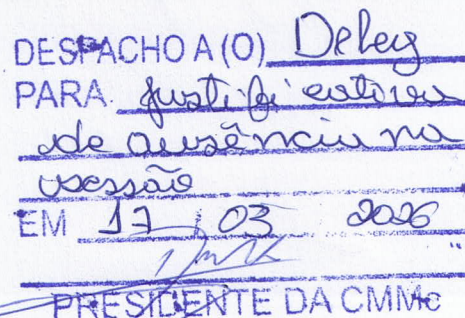 DESPACHO A (O) Deley
PARA justificativa
de ausência na
sessão
EM 17 / 03 2026
PRESIDENTE DA CMMC